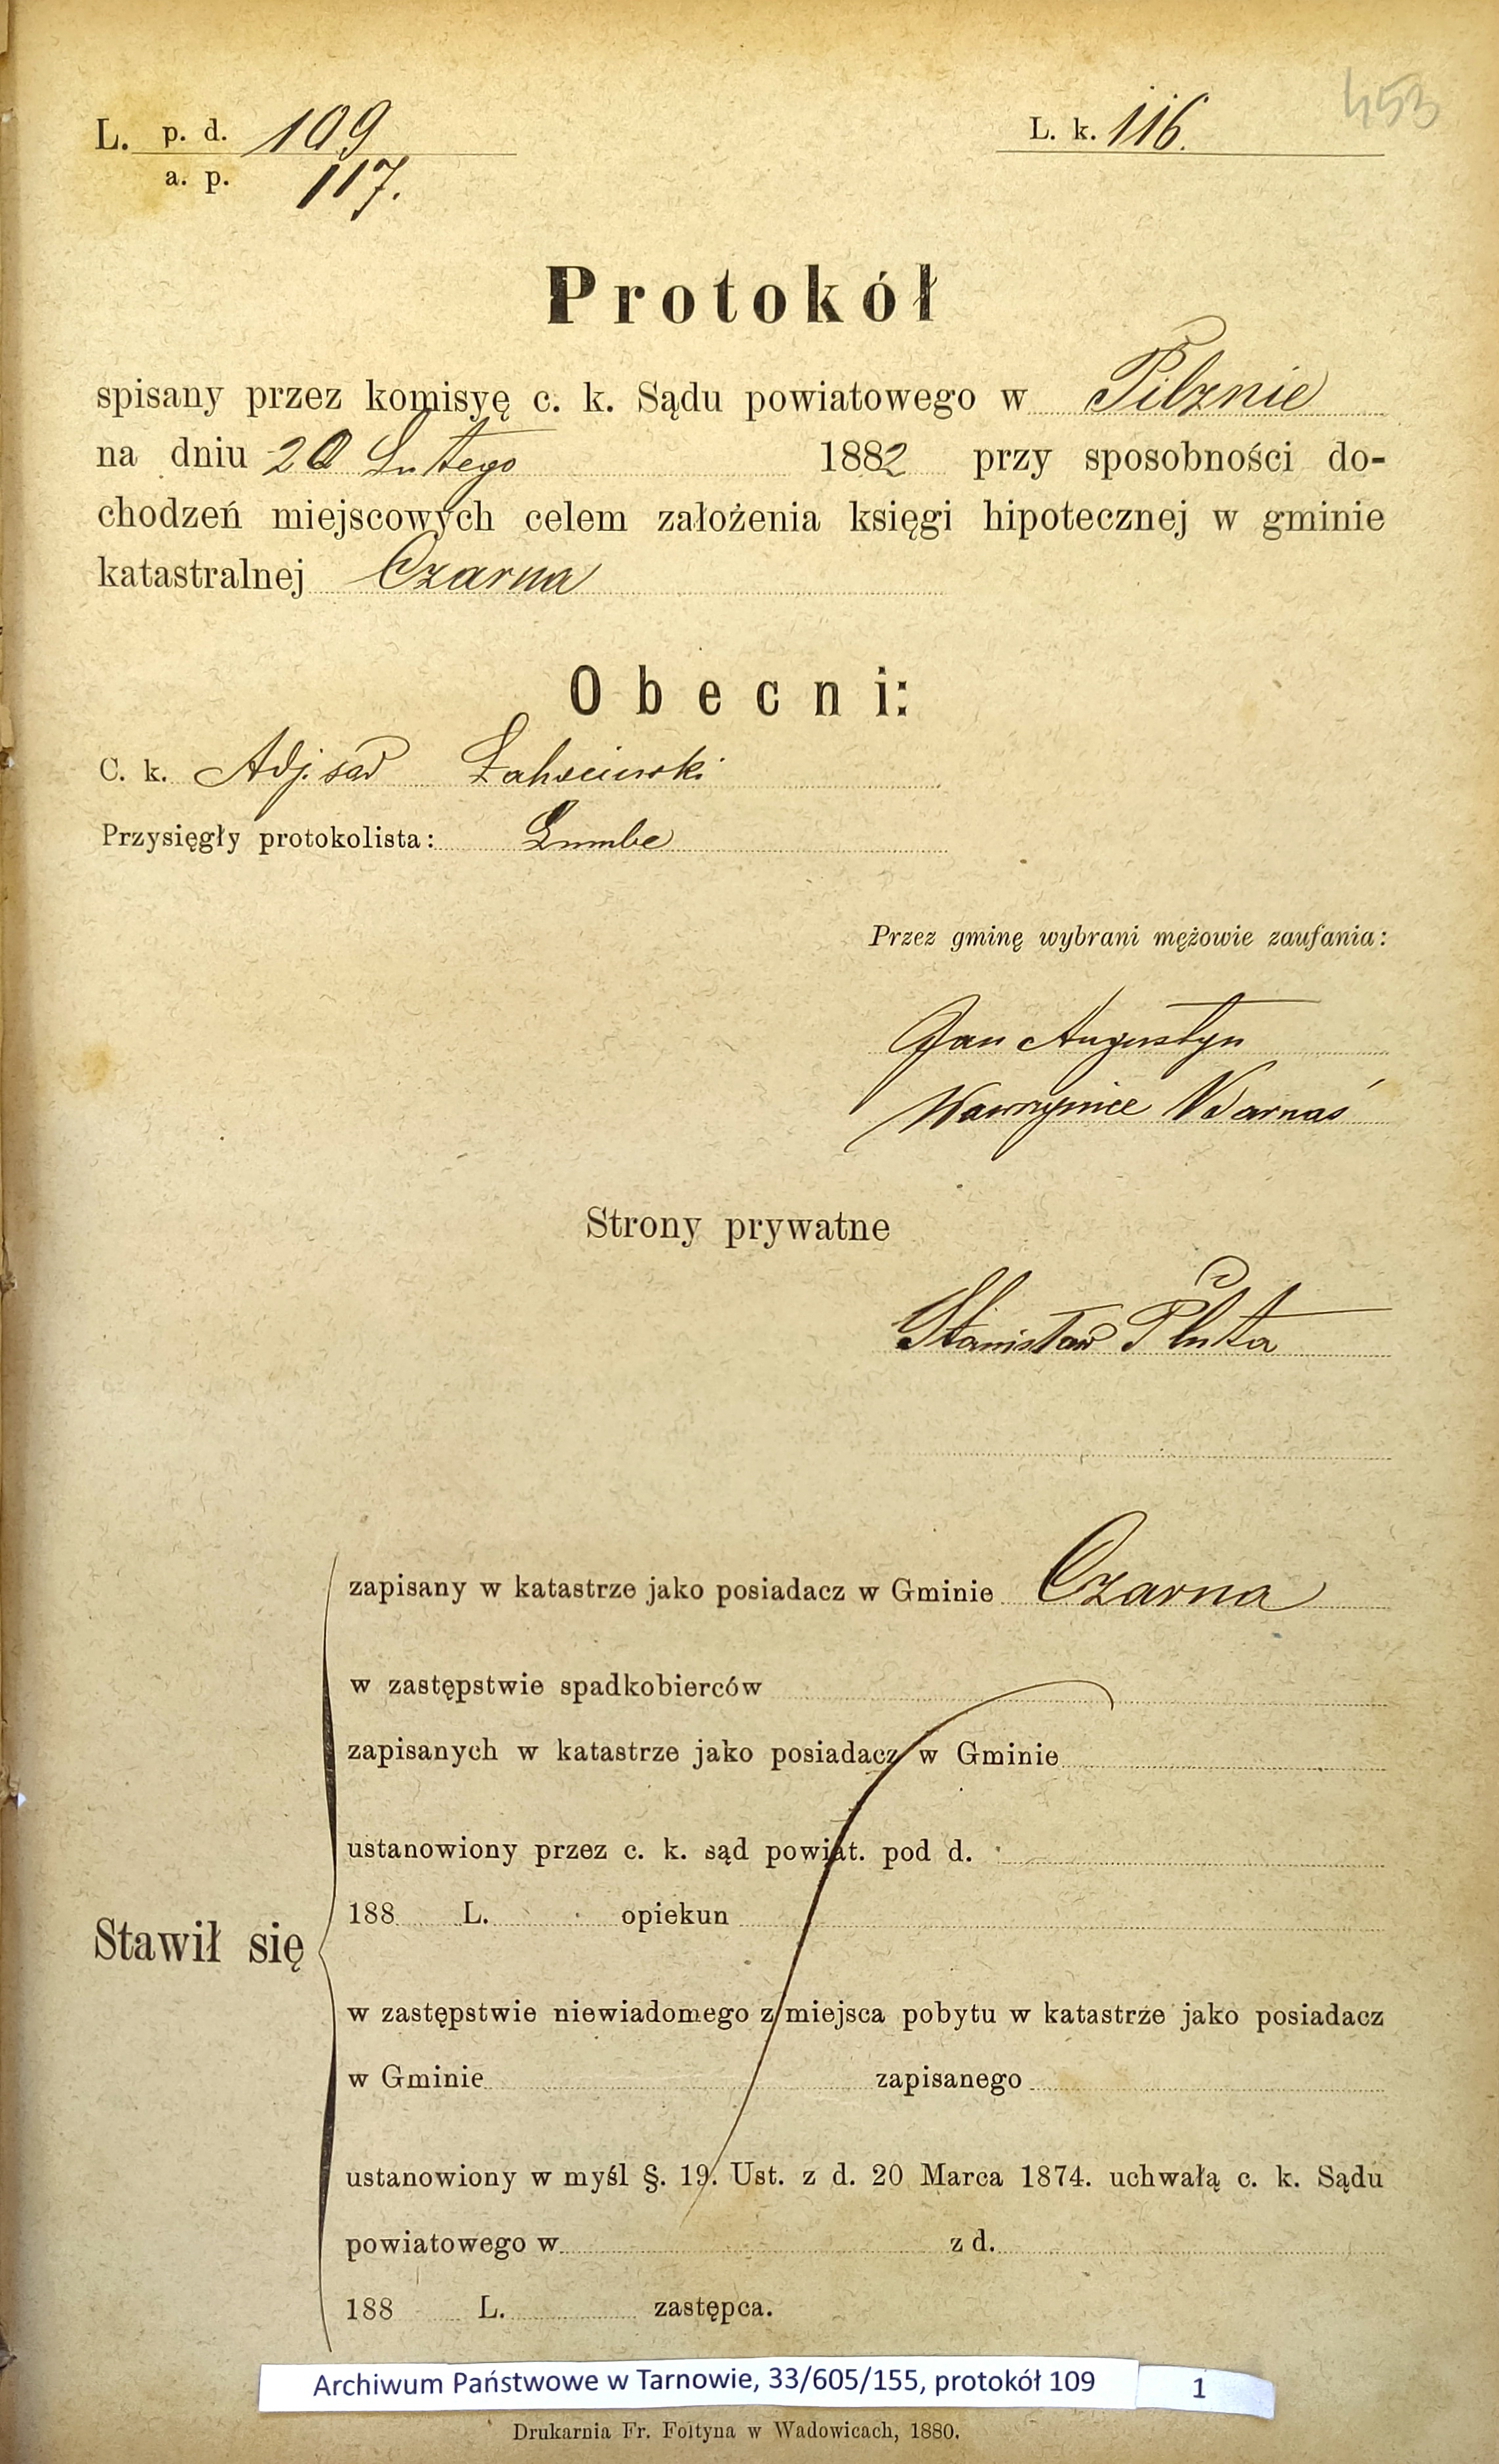 453
L. p. d. 109
a. p. 117.
L. k. 116.
Protokół
spisany przez komisyę c. k. Sądu powiatowego w Pilznie
na dniu 20 Lutego 1882 przy sposobności do-
chodzeń miejscowych celem założenia księgi hipotecznej w gminie
katastralnej Czarna
Obecni:
C. k. Adj. sąd
Przysięgły protokolista:
Przez gminę wybrani mężowie zaufania:
Jan Augustyn
Wawrzyniec Warnaś
Strony prywatne
Stanisław Pluta
zapisany w katastrze jako posiadacz w Gminie Czarna
w zastępstwie spadkobierców
zapisanych w katastrze jako posiadacz w Gminie
ustanowiony przez c. k. sąd powiat. pod d.
188 L. opiekun
Stawił się
w zastępstwie niewiadomego z miejsca pobytu w katastrze jako posiadacz
w Gminie zapisanego
ustanowiony w myśl §. 19. Ust. z d. 20 Marca 1874. uchwałą c. k. Sądu
powiatowego w z d.
188 L. zastępca.
Archiwum Państwowe w Tarnowie, 33/605/155, protokół 109 1
Drukarnia Fr. Foltyna w Wadowicach, 1880.